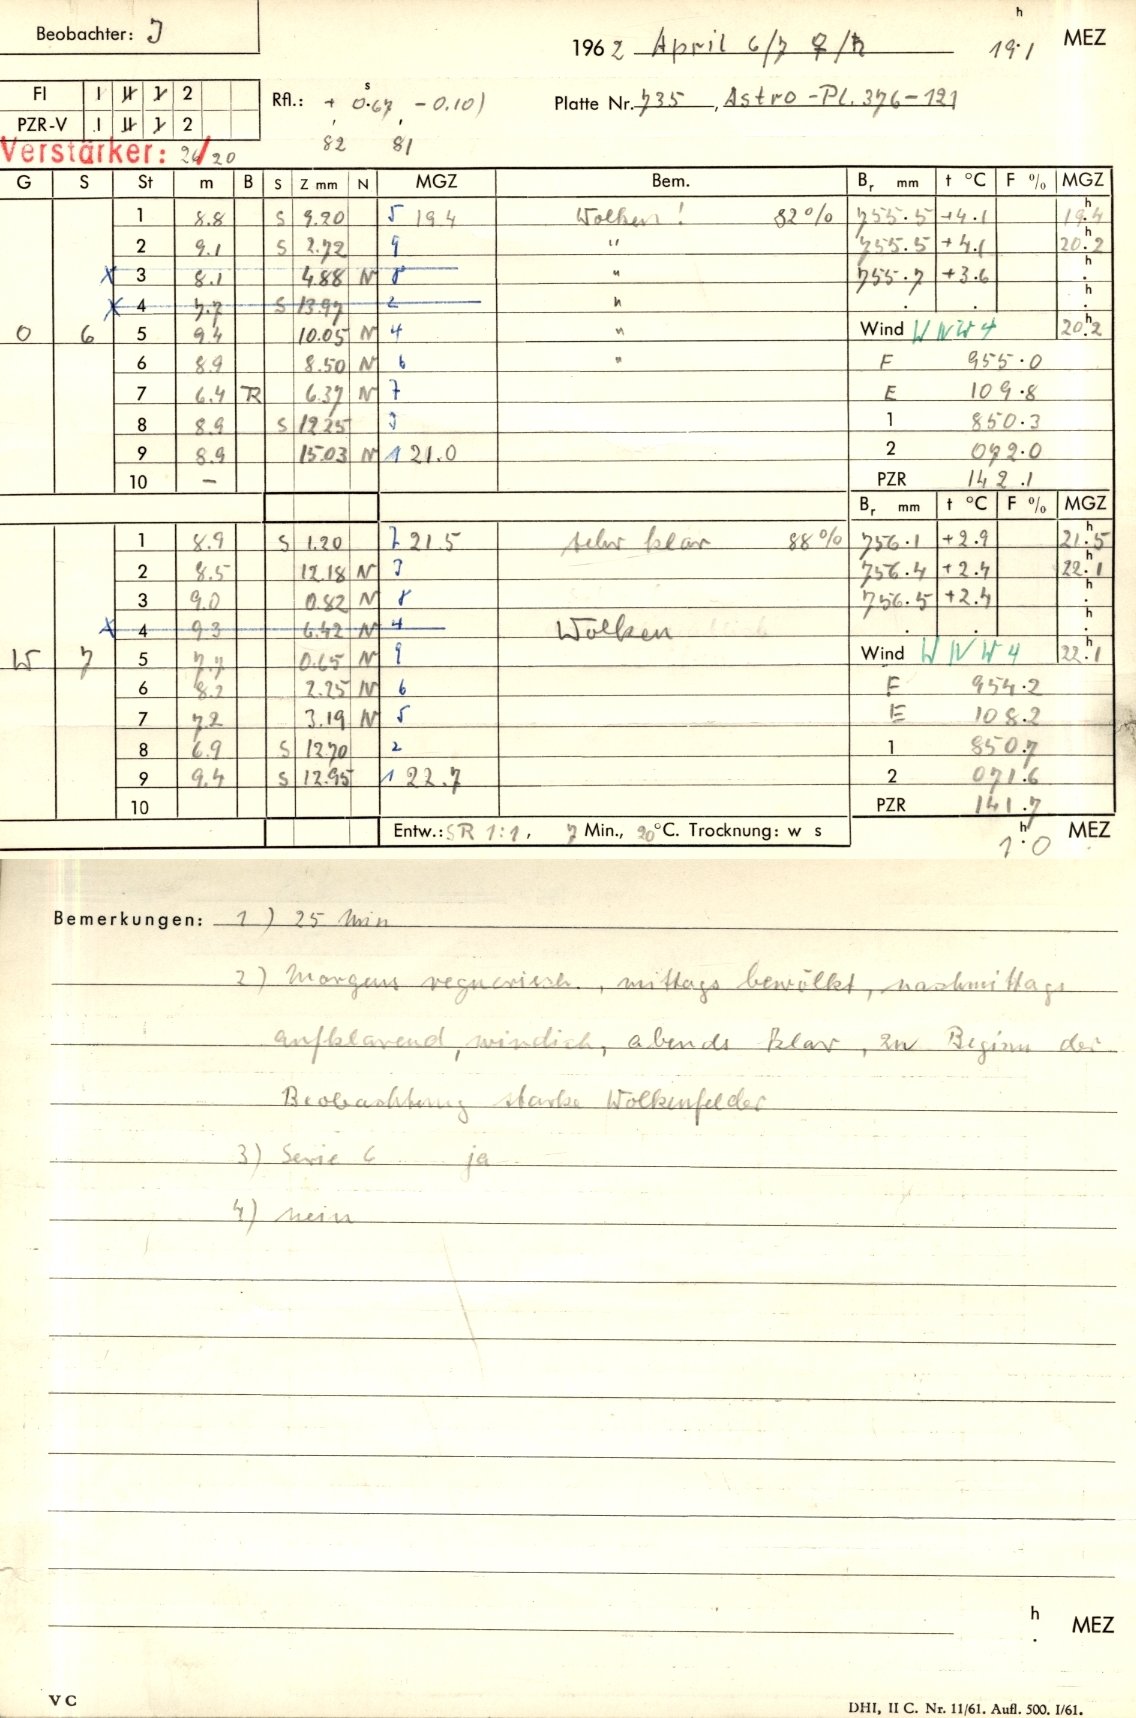 Beobachter: J
1962 April 6/7 ♀/♄ 19.1 h MEZ
FI 1 2
PZR-V 1 2
Rfl.: + 0.67 s - 0.10)
82 81
Platte Nr. 735, Astro-Pl. 376-121
Verstärker: 20
G S St m B S Z mm N MGZ Bem. Br mm t °C F % MGZ
1 8.8 S 9.20 5 19.4 Wolken! 82% 755.5 +4.1 19.4 h
2 9.1 S 2.72 9 " 755.5 +4.1 20.2 h
x 3 8.1 4.88 N 8 " 755.7 +3.6 . h
x 4 7.7 S 13.97 2 " . . . h
O 6 5 9.4 10.05 N 4 " Wind WNW 4 20.2 h
6 8.9 8.50 N 6 " F 955.0
7 6.4 R 6.37 N 7 E 109.8
8 8.9 S 12.25 3 1 850.3
9 8.9 15.03 N 1 21.0 2 092.0
10 – PZR 142.1
Br mm t °C F % MGZ
1 8.9 S 1.20 7 21.5 sehr klar 88% 756.1 +2.9 21.5 h
2 8.5 12.18 N 3 756.4 +2.7 22.1 h
3 9.0 0.82 N 8 756.5 +2.4 . h
x 4 9.3 6.42 N 4 Wolken . . . h
W 7 5 7.7 0.65 N 9 Wind WNW 4 22.1 h
6 8.2 2.25 N 6 F 954.2
7 7.2 3.19 N 5 E 108.2
8 6.9 S 12.70 2 1 850.7
9 9.4 S 12.95 1 22.7 2 071.6
10 PZR 141.7
Entw.: SR 1:1, 7 Min., 20°C. Trocknung: w s 1.0 h MEZ
Bemerkungen: 1) 25 Min
2) Morgens regnerisch, mittags bewölkt, nachmittags
aufklarend, windich, abends klar, zu Beginn der
Beobachtung starke Wolkenfelder
3) Serie 6 ja
4) nein
h
. MEZ
V C
DHI, II C. Nr. 11/61. Aufl. 500. I/61.